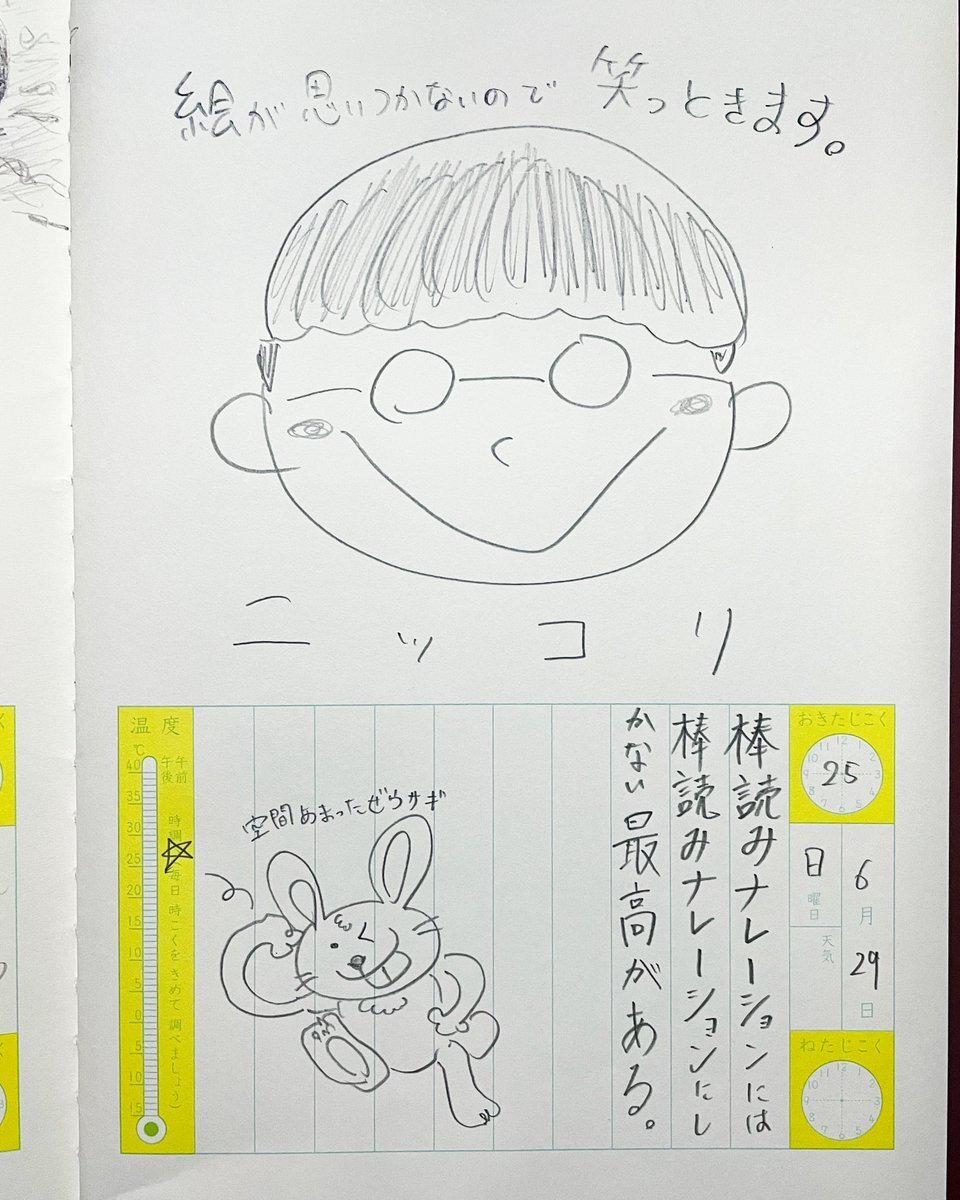 絵が思いつかないので笑っときます。
ニッコリ
おきたじこく
25
6月29日
日曜日
天気
ねたじこく
棒読みナレーションには
棒読みナレーションにし
かない最高がある。
空間あまったぜウサギ
温度
℃
午前
午後
時調
毎日時こくをきめて調べましょう)
40
35
30
25
20
15
10
5
0
5
10
15